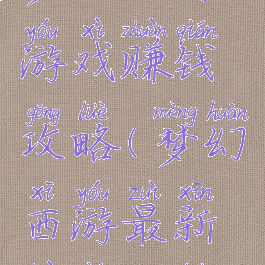 yóu xì zhuàn qián
游戏赚钱
gōng lüè mèng huàn
攻略(梦幻
xī yóu zuì xīn
西游最新